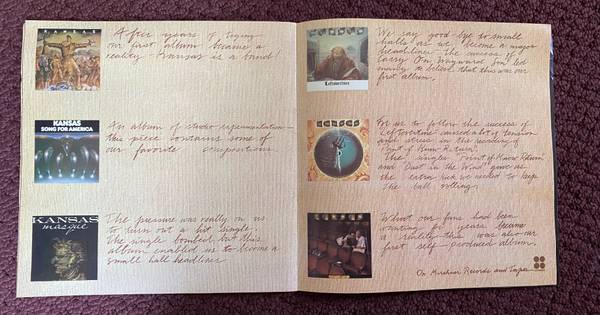 KANSAS
After years of trying
our first album became a
reality - Kansas is a band!
KANSAS
SONG FOR AMERICA
An album of studio experimentation -
this piece contains some of
our favorite compositions.
KANSAS
masque
The pressure was really on us
to turn out a hit single.
The single bombed but this
album enabled us to become a
small hall headliner
Leftoverture
We say good-bye to small
halls as we become a major
headliner. The success of
Carry On Wayward Son led
many to believe that this was our
first album.
KANSAS
For us to follow the success of
"Leftoverture" caused a lot of tension
and stress in the recording of
"Point of Know Return".
The singles "Point of Know Return
and Dust in the Wind" gave us
the extra kick we needed to keep
the ball rolling.
What our fans had been
wanting for years became
a reality - this was also our
first self-produced album.
On Kirshner Records and Tapes